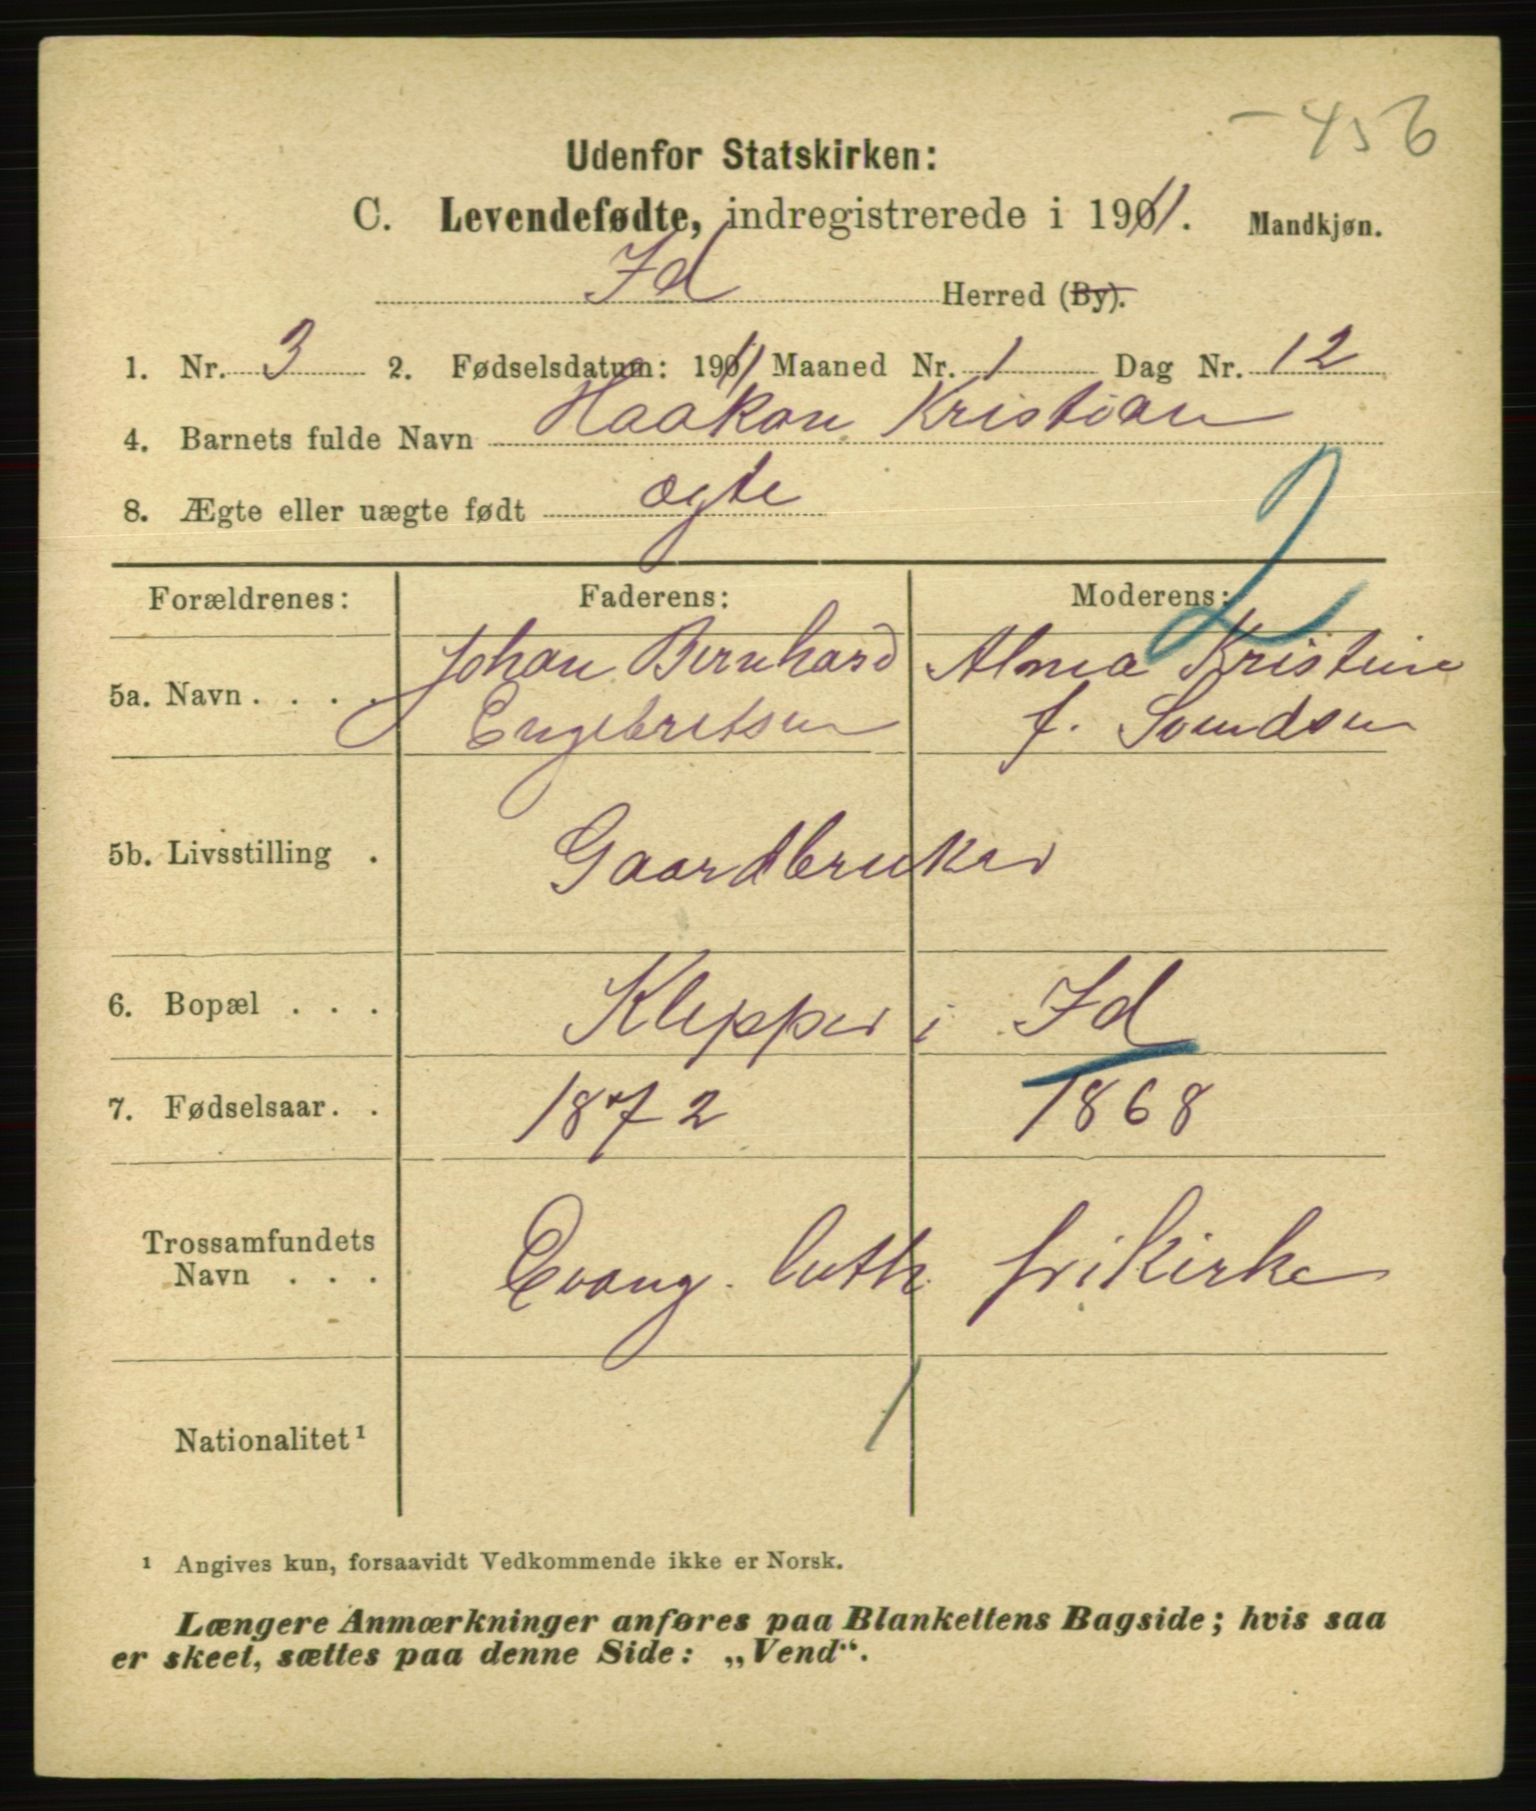 - 456
Udenfor Statskirken:
C. Levendefødte, indregistrerede i 1911. Mandkjøn.
Id Herred (By).
1. Nr. 3 2. Fødselsdatum: 1911 Maaned Nr. 1 Dag Nr. 12
4. Barnets fulde Navn Haakon Kristian
8. Ægte eller uægte født ægte
2
Forældrenes: Faderens: Moderens:
5a. Navn . . . . Johan Bernhard Alma Kristine
Engebretsen f. Svendsen
5b. Livsstilling . Gaardbruker
6. Bopæl . . . Klepper i Id
7. Fødselsaar . . 1872 1868
Trossamfundets
Navn . . . Evang. luth. frikirke
Nationalitet¹
¹ Angives kun, forsaavidt Vedkommende ikke er Norsk.
Længere Anmærkninger anføres paa Blankettens Bagside; hvis saa
er skeet, sættes paa denne Side: „Vend“.